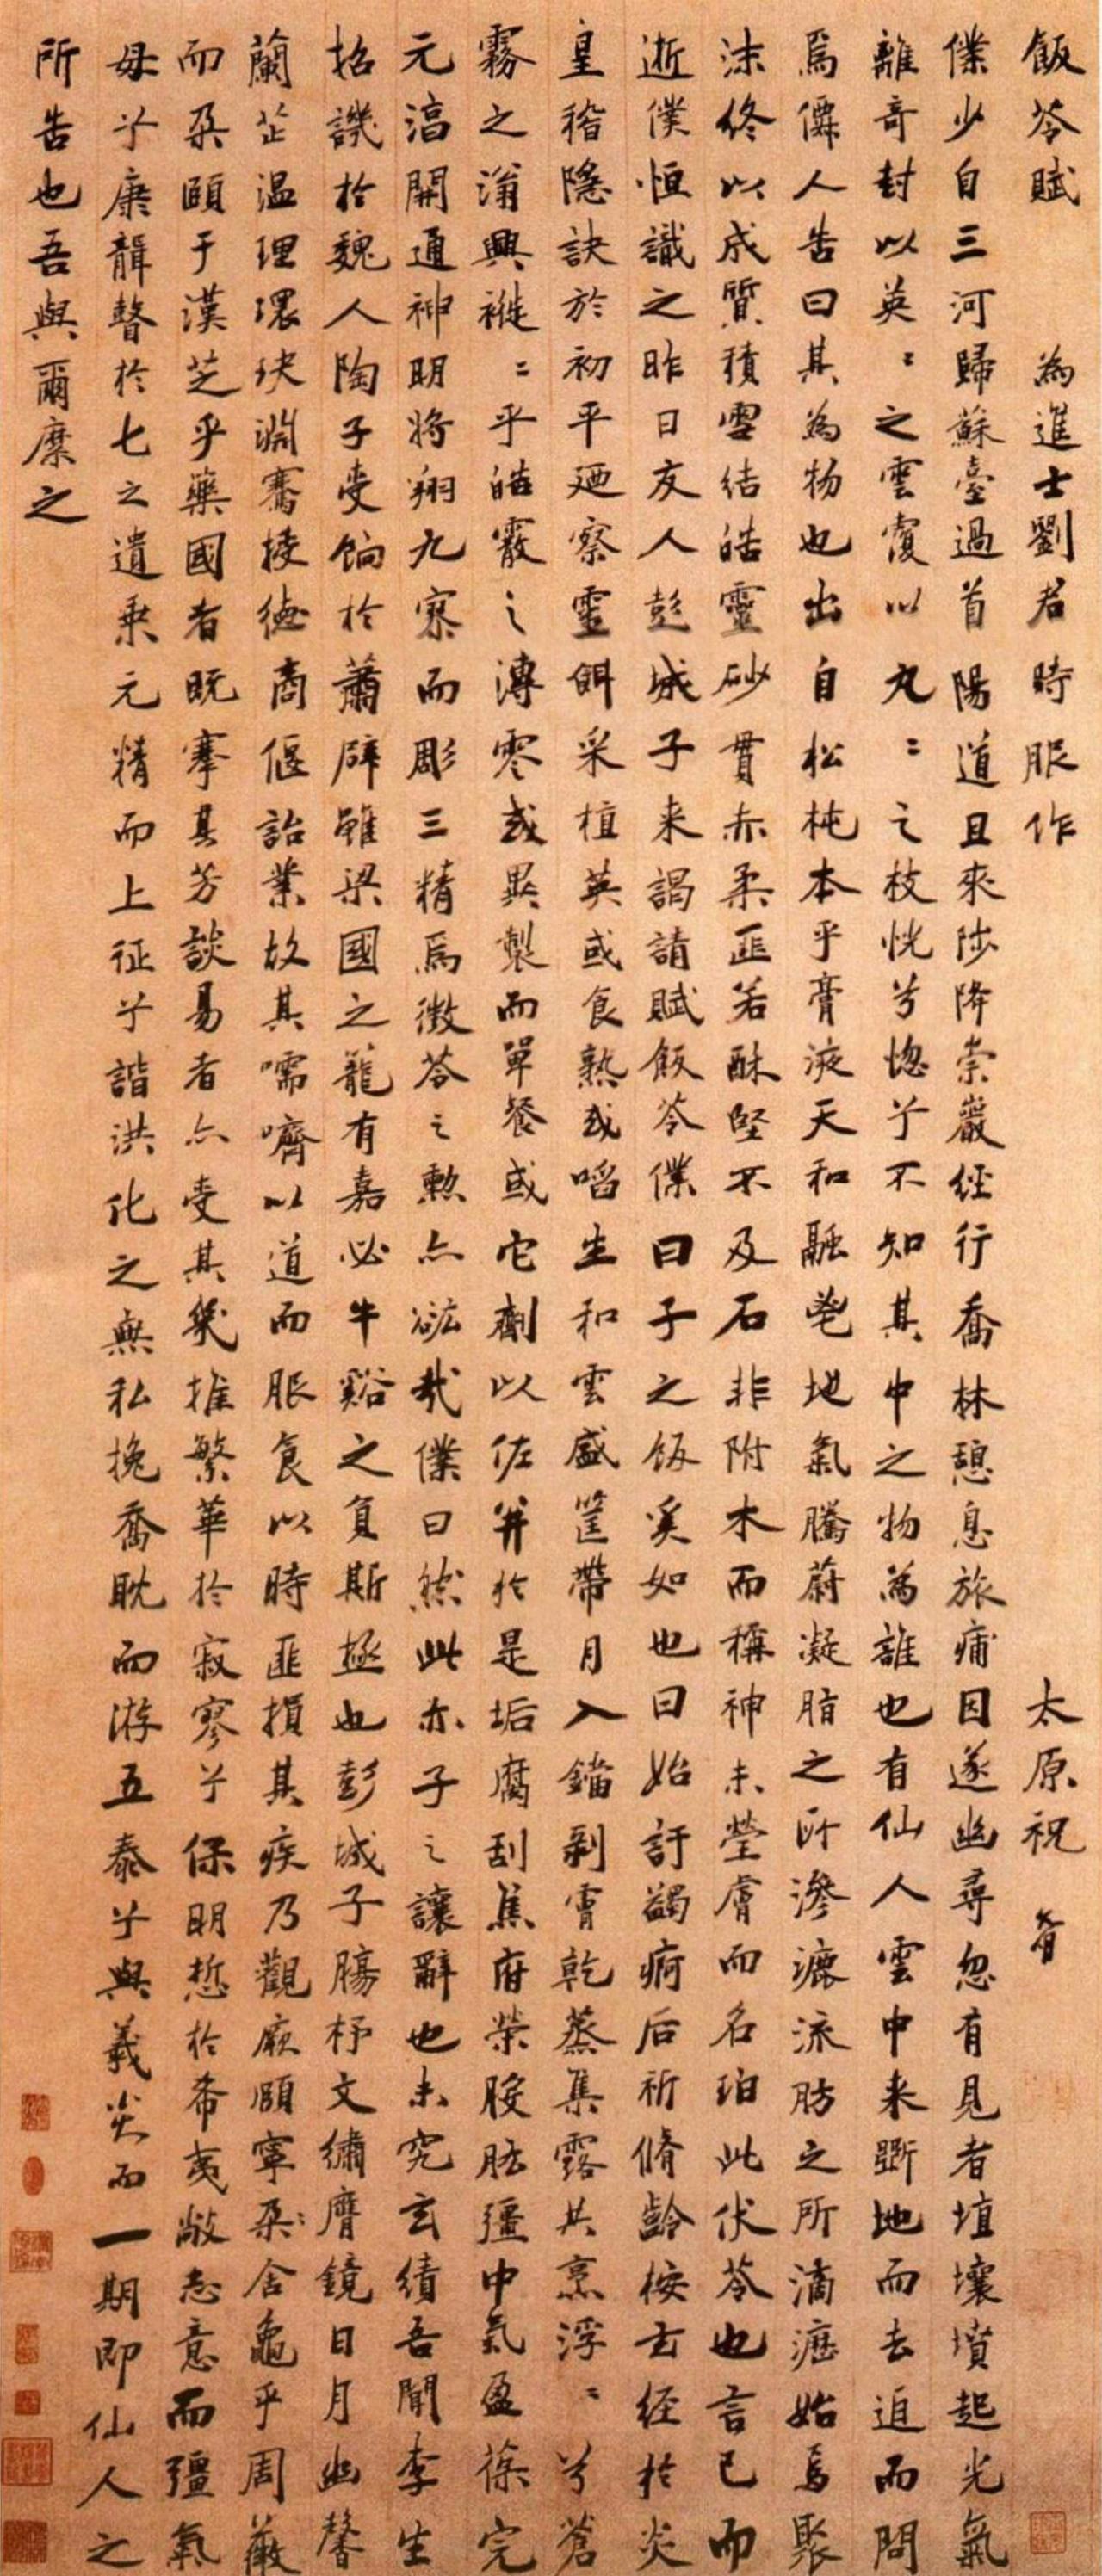 飯苓賦 為進士劉君時服作 太原祝
僕少自三河歸蘇臺過首陽道且來陟降崇巖經行喬林憩息旅痡因遂幽尋忽有見者埴壤墳起光氣
離奇封以英〻之雲覆以丸〻之枝恍兮惚兮不知其中之物為誰也有仙人雲中來斲地而去追而問
焉僊人告曰其為物也出自松杶本乎膏液天和融鬯地氣騰蔚凝脂之所滲漉流肪之所滴瀝始焉聚
沫終以成質積雪結皓靈砂貫赤柔匪若酥堅不及石非附木而稱神未瑩膚而名珀此伏苓也言已而
逝僕恒識之昨日友人彭城子來謁請賦飯苓僕曰子之飯奚如也曰始訝蠲痾后祈脩齡按玄經於炎
皇稽隱訣於初平廼察靈餌采植英或食熟或啗生和雲盛筐帶月入鐺剝膚乾蒸集露共烹浮〻兮蒼
霧之滃興褷〻乎皓霰之漙零或異製而單餐或它劑以佐并於是垢腐刮焦府榮胺胠彊中氣盈葆完
元滈開通神明將翔九寥而彫三精焉微苓之勲亦茲哉僕曰然此亦子之讓辭也未究玄績吾聞李生
招譏於魏人陶子受餉於蕭辟雖梁國之籠有嘉必牛谿之負斯極也彭城子腸杼文繡膺鏡日月幽馨
蘭芷温理環玦淵騫接德商偃詒業故其嚅嚌以道而服食以時匪損其疾乃觀厥頤寧朶〻舍龜乎周
而朶頤于漢芝乎藥國者既搴其芳談易者亦受其幾推繁華於寂寥兮保明悊於希夷敞志意而彊氣
毋兮康韻聲於七之遺乘元精而上征兮諧洪化之無私挽喬耽而游五泰兮與羲炎而一期即仙人之
所告也吾與爾縻之